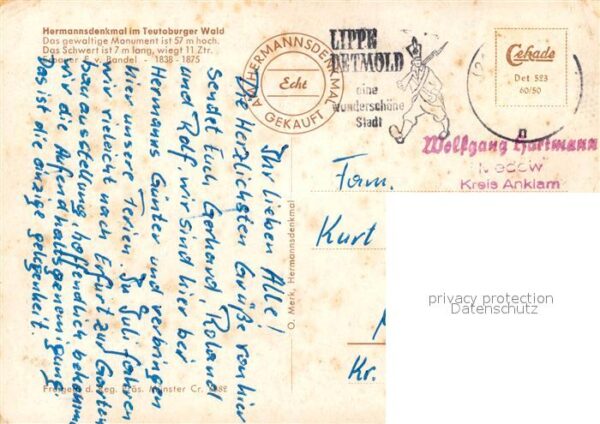 Hermannsdenkmal im Teutoburger Wald
Das gewaltige Monument ist 57 m hoch.
Das Schwert ist 7 m lang, wiegt 11 Ztr.
Erbauer E. v. Bandel - 1838 - 1875
AM HERMANNSDENKMAL
Echt
GEKAUFT
LIPPE
DETMOLD
eine
wunderschöne
Stadt
Cekade
Det 523
60/50
Wolfgang Hartmann
Medow
Kreis Anklam
Ihr lieben Alle!
Die herzlichsten Grüße von hier
sendet Euch Gerhard, Roland
und Rolf, wir sind hier bei
Hermanns Günter und verbringen
hier unsere Ferien. Im Juli fahren
wir vieleicht nach Erfurt zur Garten
bauausstellung, hoffendlich bekommen
wir die Aufendhaltsgenemigung.
Das ist die einzige gelegenheit.
O. Merk, Hermannsdenkmal
Fam.
Kurt
Kr.
Freigeg. d. Reg. Präs. Münster Cr.
privacy protection
Datenschutz